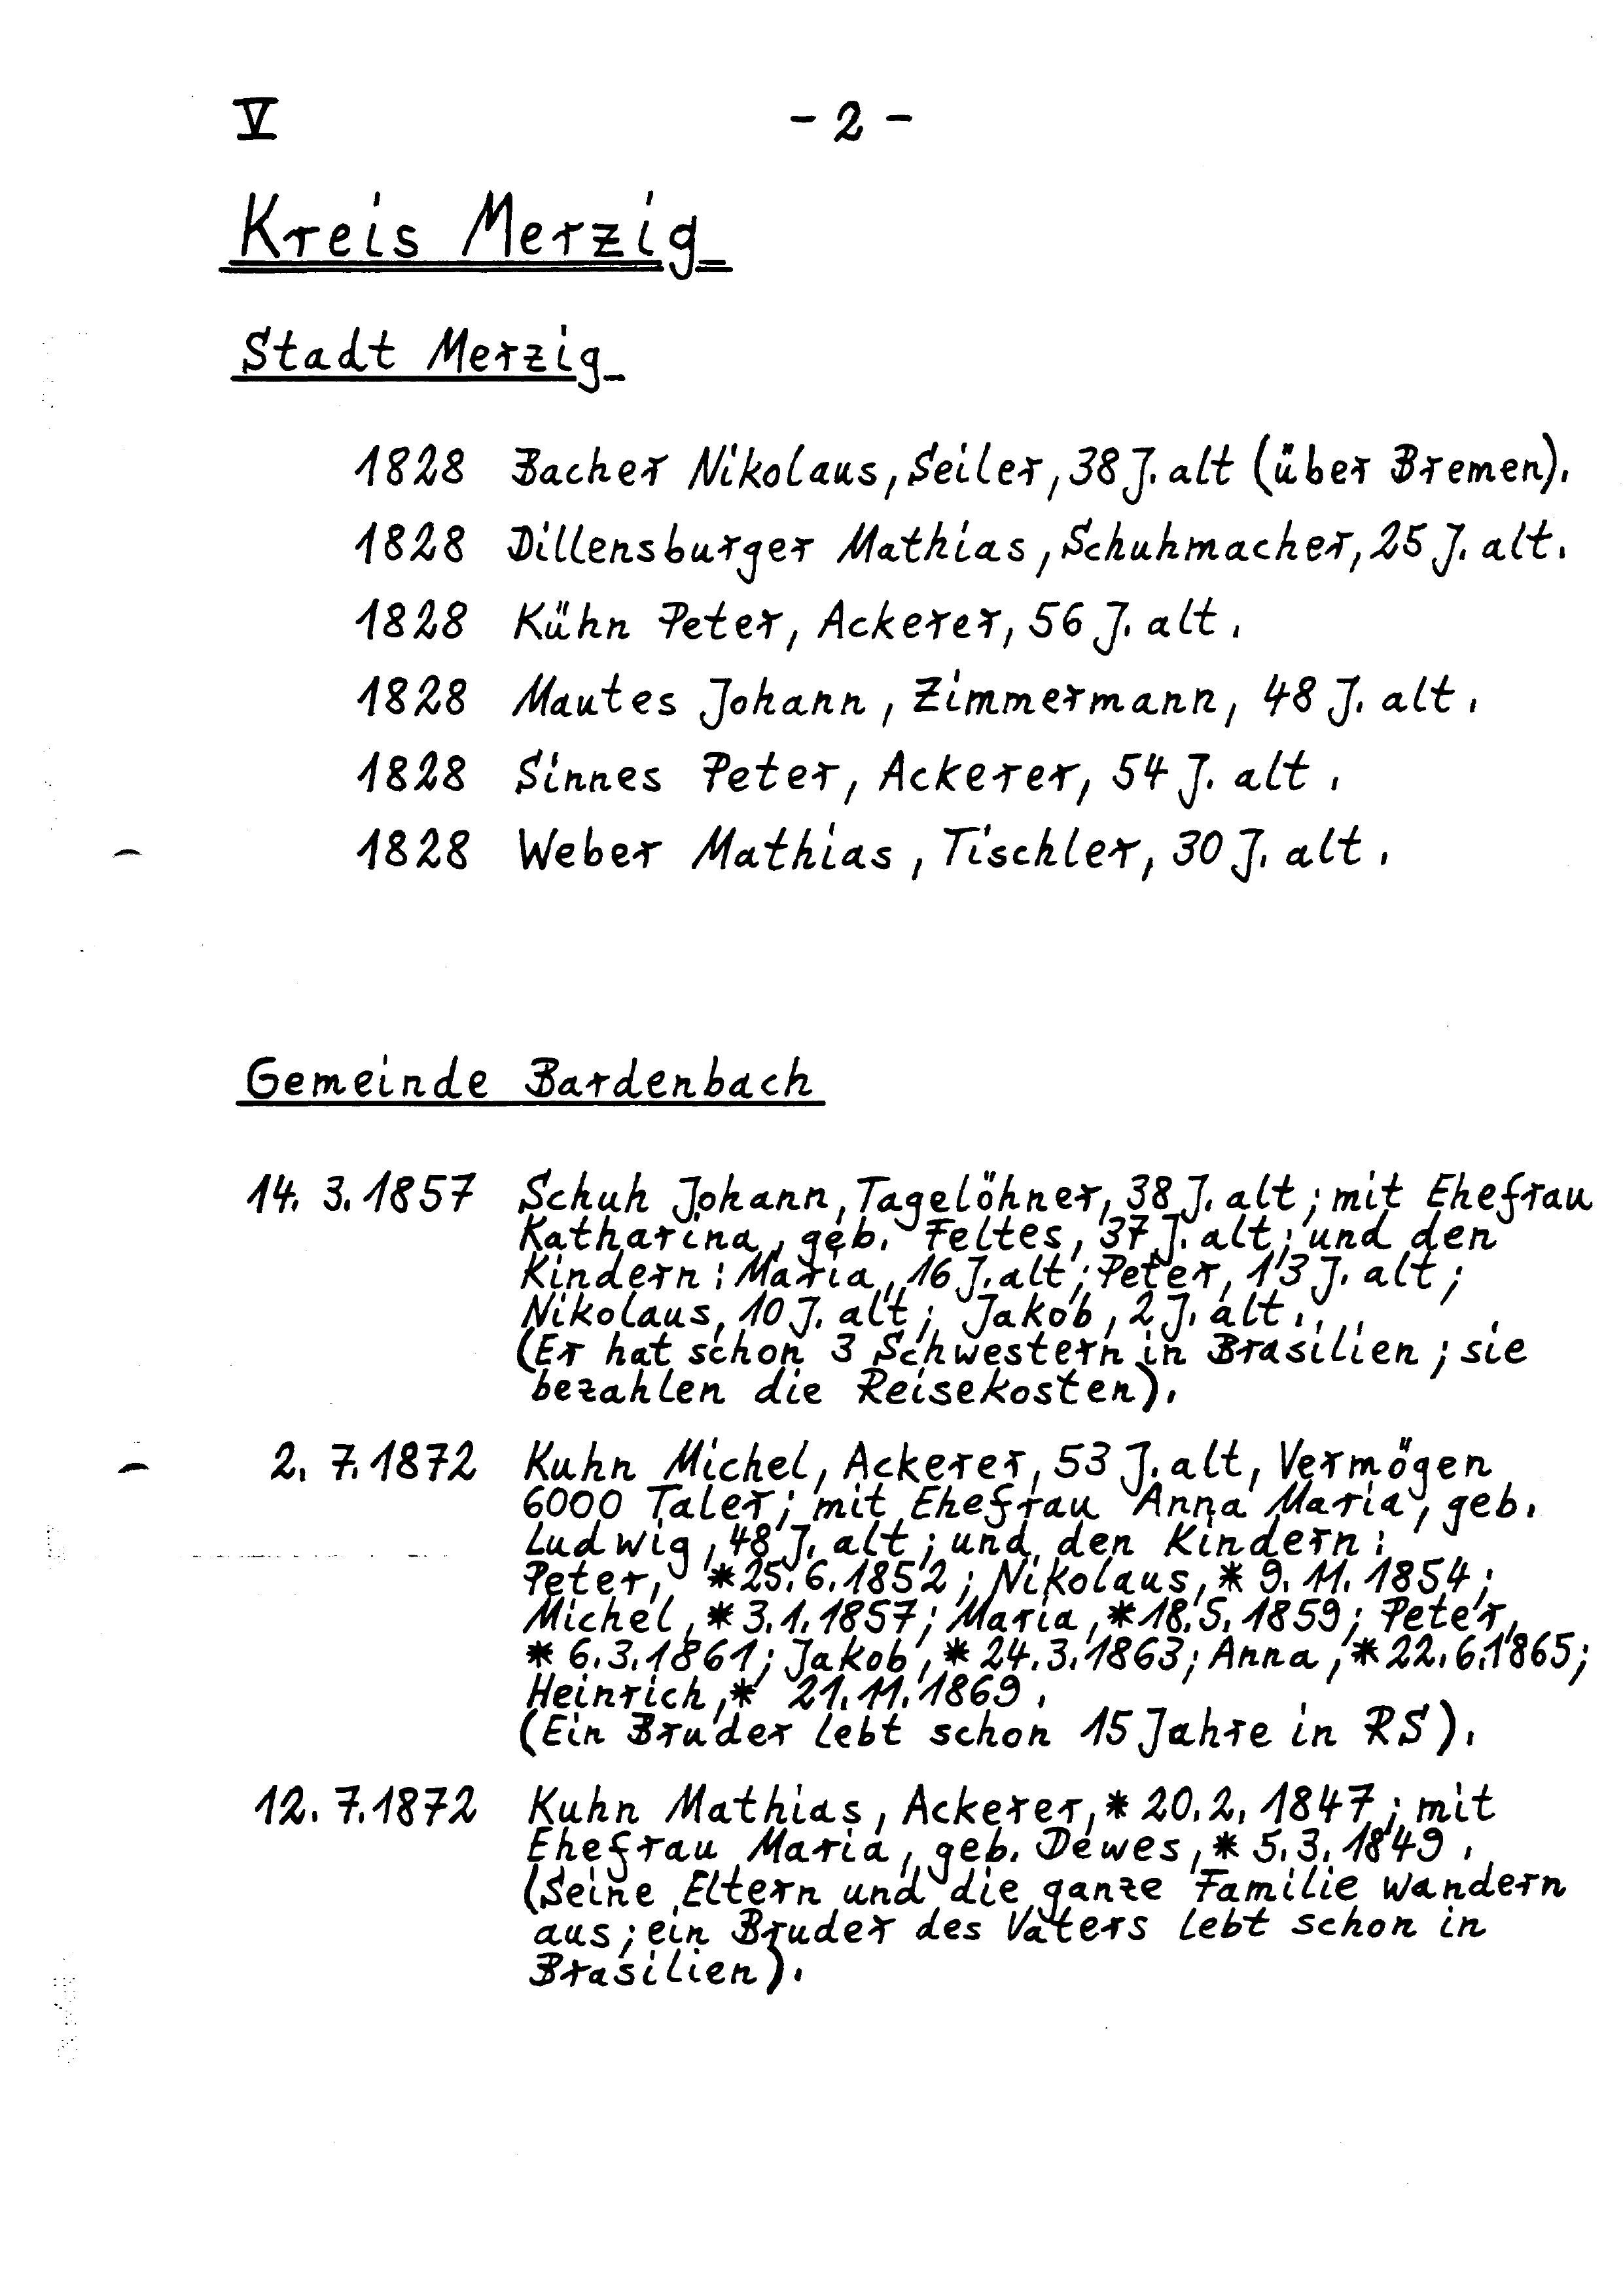 V - 2 -
Kreis Merzig
Stadt Merzig
1828 Bacher Nikolaus, Seiler, 38 J. alt (über Bremen).
1828 Dillensburger Mathias, Schuhmacher, 25 J. alt.
1828 Kühn Peter, Ackerer, 56 J. alt.
1828 Mautes Johann, Zimmermann, 48 J. alt.
1828 Sinnes Peter, Ackerer, 54 J. alt.
1828 Weber Mathias, Tischler, 30 J. alt.
Gemeinde Bardenbach
14. 3. 1857 Schuh Johann, Tagelöhner, 38 J. alt; mit Ehefrau
Katharina, geb. Feltes, 37 J. alt; und den
Kindern: Maria, 16 J. alt; Peter, 13 J. alt;
Nikolaus, 10 J. alt; Jakob, 2 J. alt.
(Er hat schon 3 Schwestern in Brasilien; sie
bezahlen die Reisekosten).
2. 7. 1872 Kuhn Michel, Ackerer, 53 J. alt, Vermögen
6000 Taler; mit Ehefrau Anna Maria, geb.
Ludwig, 48 J. alt; und den Kindern:
Peter, *25.6.1852; Nikolaus, * 9.11.1854;
Michel, *3.1.1857; Maria, *18.5.1859; Peter,
* 6.3.1861; Jakob, * 24.3.1863; Anna, *22.6.1865;
Heinrich, * 21.11.1869.
(Ein Bruder lebt schon 15 Jahre in RS).
12. 7. 1872 Kuhn Mathias, Ackerer, * 20.2.1847; mit
Ehefrau Maria, geb. Dewes, * 5.3.1849.
(Seine Eltern und die ganze Familie wandern
aus; ein Bruder des Vaters lebt schon in
Brasilien).